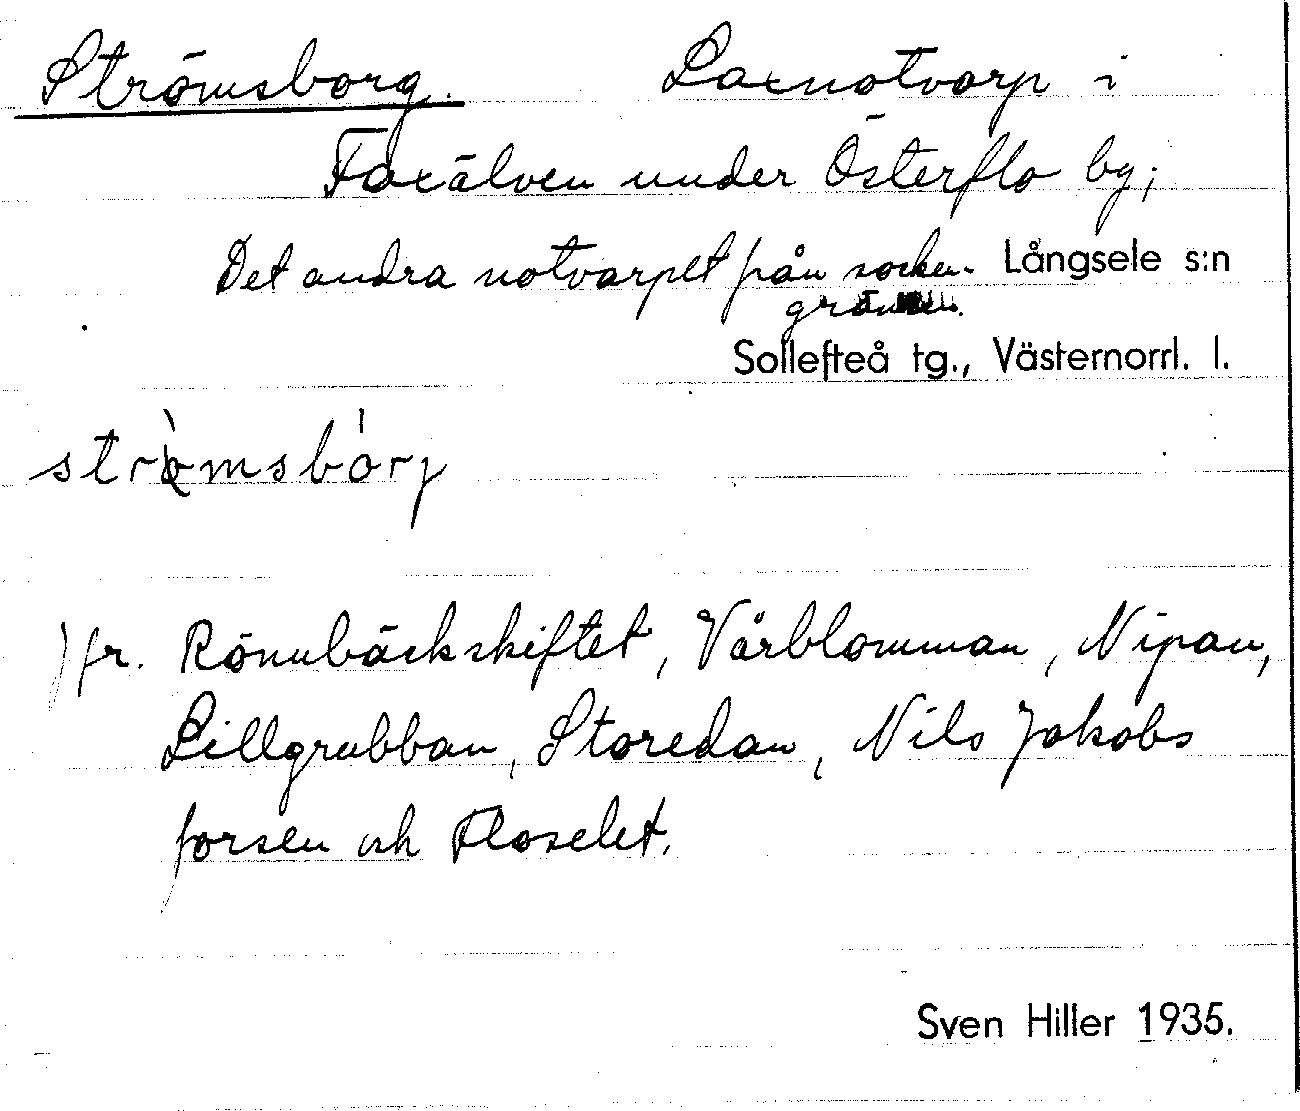 Strömsborg. Laxnotvarp i
Faxälven under Österflo by;
Det andra notvarpet från socken- Långsele s:n
gränsen.
Sollefteå tg., Västernorrl. l.
strò̤msbórj
Jfr. Rönnbäckskiftet, Vårblomman, Nipan,
Lillgrubban, Storedan, Nils Jakobs
forsen och Floselet.
Sven Hiller 1935.